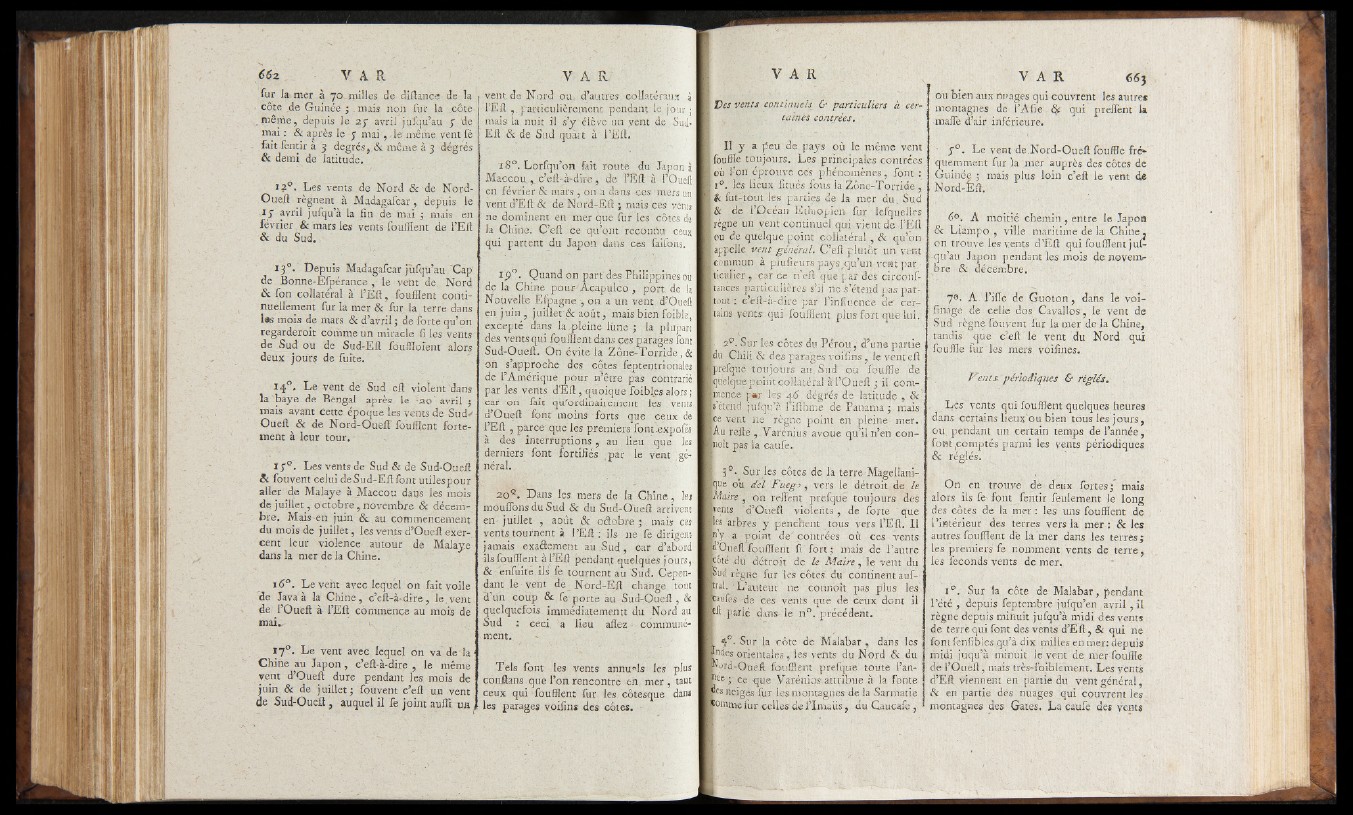 662 V A R
sur la mer à 70 milles de distance de la
côte de Guinée ; mais non sur la côte
même, depuis le 25 avril jusqu'au 5 de
mai : & après le 5 mai, le même vent se
fait sentir à 3 degrés, & même à 3 dégrés
& demi de latitude.
12°. Les vents de Nord & de Nord-
Ouest règnent à Madagascar, depuis le
15 avril jusqu'à la fin de mai ; mais en
février & mars les vents soufflent de l'Est
& du Sud.
13°. Depuis Madagascar jusqu'au Cap
de Bonne-Espérance, le vent de Nord
& son collatéral à l'Est, soufflent conti-
nuellement sur la mer & sur la terre dans
les mois de mars & d'avril ; de sorte qu'on
regarderoit comme un miracle si les vents
de Sud ou de Sud-Est souffloient alors
deux jours de suite.
14°. Le vent de Sud est violent dans
la baye de Bengal après le 20 avril ;
mais avant cette époque les vents de Sud-
Ouest & de Nord-Ouest soufflent forte-
ment à leur tour.
15°. Les vents de Sud & de Sud-Ouest
& souvent celui de Sud-Est sont utiles pour
aller de Malaye à Maccou dans les mois
de juillet, octobre, novembre & décem-
bre. Mais en juin & au commencement
du mois de juillet, les vents d'Ouest exer-
cent leur violence autour de Malaye
dans la mer de la Chine.
16°. Le vent avec lequel on fait voile
de Java à la Chine, c'est-à-dire, le vent
de l'Ouest à l'Est commence au mois de
mai.
17°. Le vent avec lequel on va de la
Chine au Japon, c'est-à-dire, le même
vent d'Ouest dure pendant les mois de
juin & de juillet ; souvent c'est un vent
de Sud-Ouest, auquel il se joint aussi un
V A R
vent de Nord ou d'autres collatéraux à
l'Est, particulièrement pendant le jour ;
mais la nuit il s'y élève un vent de Sud-
Est & de Sud quart à l'Est.
18°. Lorsqu'on fait route du Japon à
Maccou, c'est-à-dire, de l'Est à l'Ouest
en février & mars, on a dans ces mers un
vent d'Est & de Nord-Est ; mais ces vents
ne dominent en mer que sur les côtes de
la Chine. C'est ce qu'ont reconnu ceux
qui partent du Japon dans ces saisons.
19°. Quand on part des Philippines ou
de la Chine pour Acapulco, port de la
Nouvelle Espagne, on a un vent d'Ouest
en juin, juillet & août, mais bien foible,
excepté dans la pleine lune ; la plupart
des vents qui soufflent dans ces parages sont
Sud-Ouest. On évite la Zône-Torride, &
on s'approche des côtes septentrionales
de l'Amérique pour n'être pas contrarié
par les vents d'Est, quoique foibles alors ;
car on fait qu'ordinairement les vents
d'Ouest sont moins forts que ceux de
l'Est, parce que les premiers sont exposés
à des interruptions, au lieu que les
derniers sont fortifiés par le vent gé-
néral.
20°. Dans les mers de la Chine, les
moussons du Sud & du Sud-Ouest arrivent
en juillet, août & octobre ; mais ces
vents tournent à l'Est : ils ne se dirigent
jamais exactement au Sud, car d'abord
ils soufflent à l'Est pendant quelques jours,
& ensuite ils se tournent au Sud. Cepen-
dant le vent de Nord-Est change tout
d'un coup & se porte au Sud-Ouest, &
quelquefois immédiatement du Nord au
Sud : ceci a lieu assez communé-
ment.
Tels sont les vents annuels les plus
constans que l'on rencontre en mer, tant
ceux qui soufflent sur les côtes que dans
les parages voisins des côtes.
V A R
Des vents continuels & particuliers à cer-
taines contrées.
Il y a peu de pays où le même vent
souffle toujours. Les principales contrées
où l'on éprouve ces phénomènes, sont :
1°. les lieux situés sous la Zône-Torride,
& sur-tout les parties de la mer du Sud
& de l'Océan Ethiopien sur lesquelles
règne un vent continuel qui vient de l'Est
ou de quelque point collatéral, & qu'on
appelle vent général. C'est plutôt un vent
commun à plusieurs pays qu'un vent par-
ticulier, car ce n'est que par des circons-
tances particulières s'il ne s'étend pas par-
tout : c'est-à-dire par l'influence de cer-
tains vents qui soufflent plus fort que lui.
2°. Sur les côtes du Pérou, d'une partie
du Chili & des parages voisins, le vent est
presque toujours au Sud ou souffle de
quelque point collatéral à l'Ouest ; il com-
mence par les 46 dégrés de latitude, &
s'étend jusqu'à l'isthme de Panama ; mais
ce vent ne règne point en pleine mer.
Au reste, Varenius avoue qu'il n'en con-
noît pas la cause.
3°. Sur les côtes de la terre Magellani-
que ou del Fuego, vers le détroit de le
Maire, on ressent presque toujours des
vents d'Ouest violents, de sorte que
les arbres y penchent tous vers l'Est. Il
n'y a point de contrées où ces vents
d'Ouest soufflent si fort ; mais de l'autre
côté du détroit de le Maire, le vent du
Sud règne sur les côtes du continent aus-
tral. L'auteur ne connoît pas plus les
causes de ces vents que de ceux dont il
est parlé dans le n°. précédent.
4°. Sur la côte de Malabar, dans les
Indes orientales, les vents du Nord & du
Nord-Ouest soufflent presque toute l'an-
née ; ce que Varénius attribue à la fonte
des neiges sur les montagnes de la Sarmatie
comme sur celles de l'Imaüs, du Caucase,
V A R 663
ou bien aux nuages qui couvrent les autres
montagnes de l'Asie & qui pressent la
masse d'air inférieure.
5°. Le vent de Nord-Ouest souffle fré-
quemment sur la mer auprès des côtes de
Guinée ; mais plus loin c'est le vent de
Nord-Est.
6°. A moitié chemin, entre le Japon
& Liampo, ville maritime de la Chine,
on trouve les vents d'Est qui soufflent jus-
qu'au Japon pendant les mois de novem-
bre & décembre.
7°. A l'isle de Guoton, dans le voi-
sinage de celle dos Cavallos, le vent de
Sud règne souvent sur la mer de la Chine,
tandis que c'est le vent du Nord qui
souffle sur les mers voisines.
Vents périodiques & réglés.
Les vents qui soufflent quelques heures
dans certains lieux ou bien tous les jours,
ou pendant un certain temps de l'année,
sont comptés parmi les vents périodiques
& réglés.
On en trouve de deux sortes ; mais
alors ils se font sentir seulement le long
des côtes de la mer : les uns soufflent de
l'intérieur des terres vers la mer : & les
autres soufflent de la mer dans les terres ;
les premiers se nomment vents de terre,
les seconds vents de mer.
1°. Sur la côte de Malabar, pendant
l'été, depuis septembre jusqu'en avril, il
règne depuis minuit jusqu'à midi des vents
de terre qui sont des vents d'Est, & qui ne
sont sensibles qu'à dix milles en mer : depuis
midi juqu'à minuit le vent de mer souffle
de l'Ouest, mais très-foiblement. Les vents
d'Est viennent en partie du vent général,
& en partie des nuages qui couvrent les
montagnes des Gates. La cause des vents